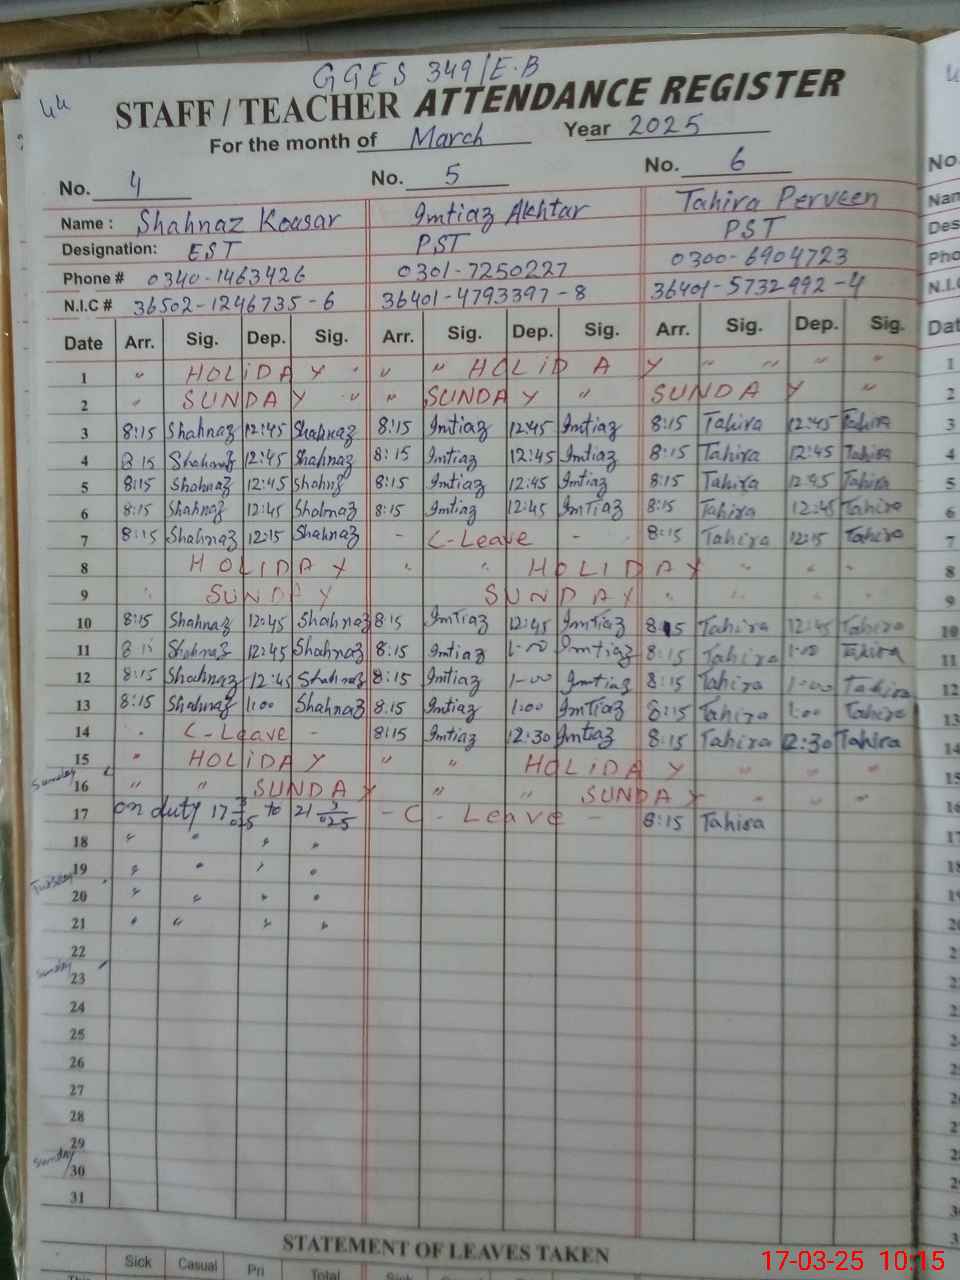 44
GGES 349/E.B
STAFF / TEACHER ATTENDANCE REGISTER
For the month of March Year 2025
No. 4 No. 5 No. 6
Name : Shahnaz Kousar Imtiaz Akhtar Tahira Perveen
Designation: EST PST PST
Phone # 0340-1463426 0301-7250227 0300-6904723
N.I.C # 36502-1246735-6 36401-4793397-8 36401-5732992-4
Date Arr. Sig. Dep. Sig. Arr. Sig. Dep. Sig. Arr. Sig. Dep. Sig.
1 " HOLiDAY " " " HOLiDAY " " " "
2 " SUNDAY " " " SUNDAY " SUNDAY "
3 8:15 Shahnaz 12:45 Shahnaz 8:15 Imtiaz 12:45 Imtiaz 8:15 Tahira 12:45 Tahira
4 8 15 Shahnaz 12:45 Shahnaz 8:15 Imtiaz 12:45 Imtiaz 8:15 Tahira 12:45 Tahira
5 8:15 Shahnaz 12:45 Shahnz 8:15 Imtiaz 12:45 Imtiaz 8:15 Tahira 12:45 Tahira
6 8:15 Shahnaz 12:45 Shahnaz 8:15 Imtiaz 12:45 ImTiaz 8:15 Tahira 12:45 Tahira
7 8:15 Shahnaz 12:15 Shahnaz - C-Leave - - 8:15 Tahira 12:15 Tahira
8 HOLIDAY " " HOLIDAY " " "
9 " SUNDAY SUNDAY " " " "
10 8:15 Shahnaz 12:45 Shahnaz 8:15 ImTiaz 12:45 ImTiaz 8:15 Tahira 12:45 Tahira
11 8:15 Shahnaz 12:45 Shahnaz 8:15 Imtiaz 1:00 Imtiaz 8:15 Tahira 1:00 Tahira
12 8:15 Shahnaz 12:45 Shahnaz 8:15 Imtiaz 1-00 Imtiaz 8:15 Tahira 1-00 Tahira
13 8:15 Shahnaz 1:00 Shahnaz 8:15 Imtiaz 1:00 ImTiaz 8:15 Tahira 1:00 Tahira
14 " C-Leave - 8:15 Imtiaz 12:30 Imtiaz 8:15 Tahira 12:30 Tahira
15 " HOLiDAY " " HOLiDAY " " "
Sunday 16 " " SUNDAY " " SUNDAY " " "
17 on duty 17 3/025 to 21 3/025 - C - Leave - 8:15 Tahira
18 " " " "
19 " " " "
Tuesday 20 " " " "
21 " " " "
22
Sunday 23
24
25
26
27
28
29
Sunday 30
31
STATEMENT OF LEAVES TAKEN
Sick Casual Pri Total Sick
17-03-25 10:15